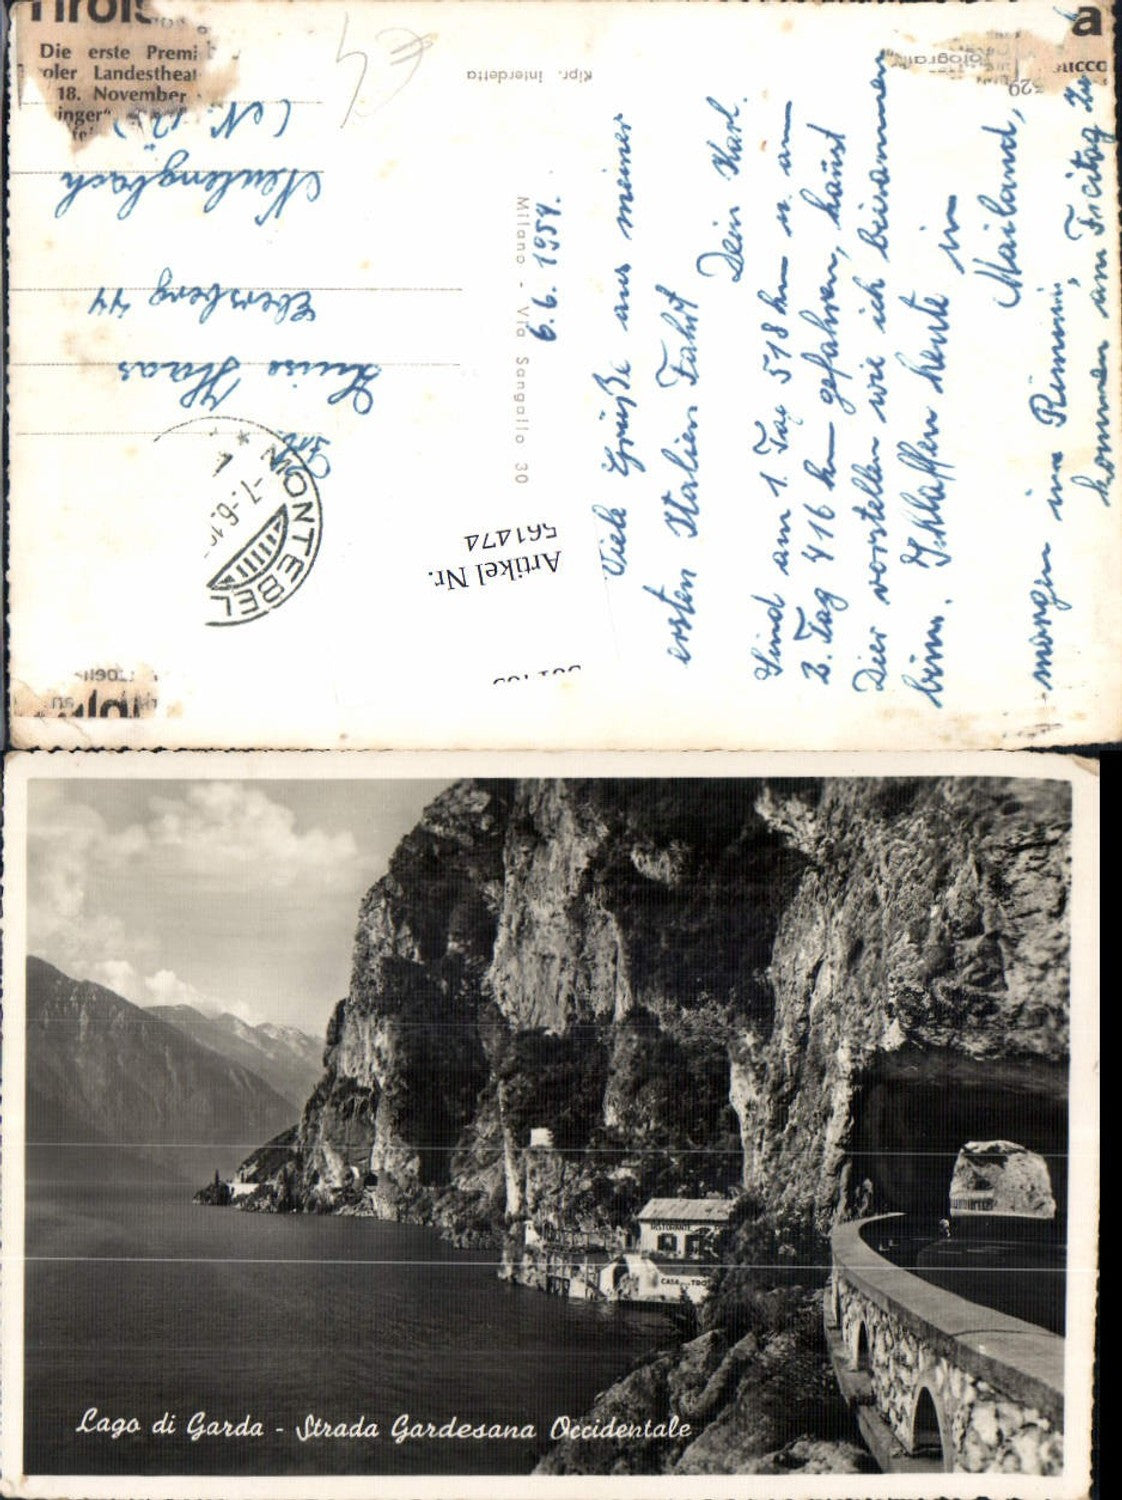 Tirols
Die erste Premi
oler Landestheat
18. November
inger"
(N.Ö.)
Neulengbach
Ebersberg 44
Luise Haas
Frl.
MONTEBEL
-7.-6.19
Kipr. interdetta
Milano - Via Sangallo 30
Artikel Nr.
561474
6.6.1954.
Viele Grüße aus meiner
ersten Italien Fahrt
Dein Karl.
Sind am 1. Tag 518 km u. am
2. Tag 416 km gefahren, kannst
Dir vorstellen wie ich beisammen
bin. Schlaffen heute in
Mailand,
morgen in Rimini,
kommen am Freitag zu
RISTORANTE
CASA
Lago di Garda - Strada Gardesana Occidentale